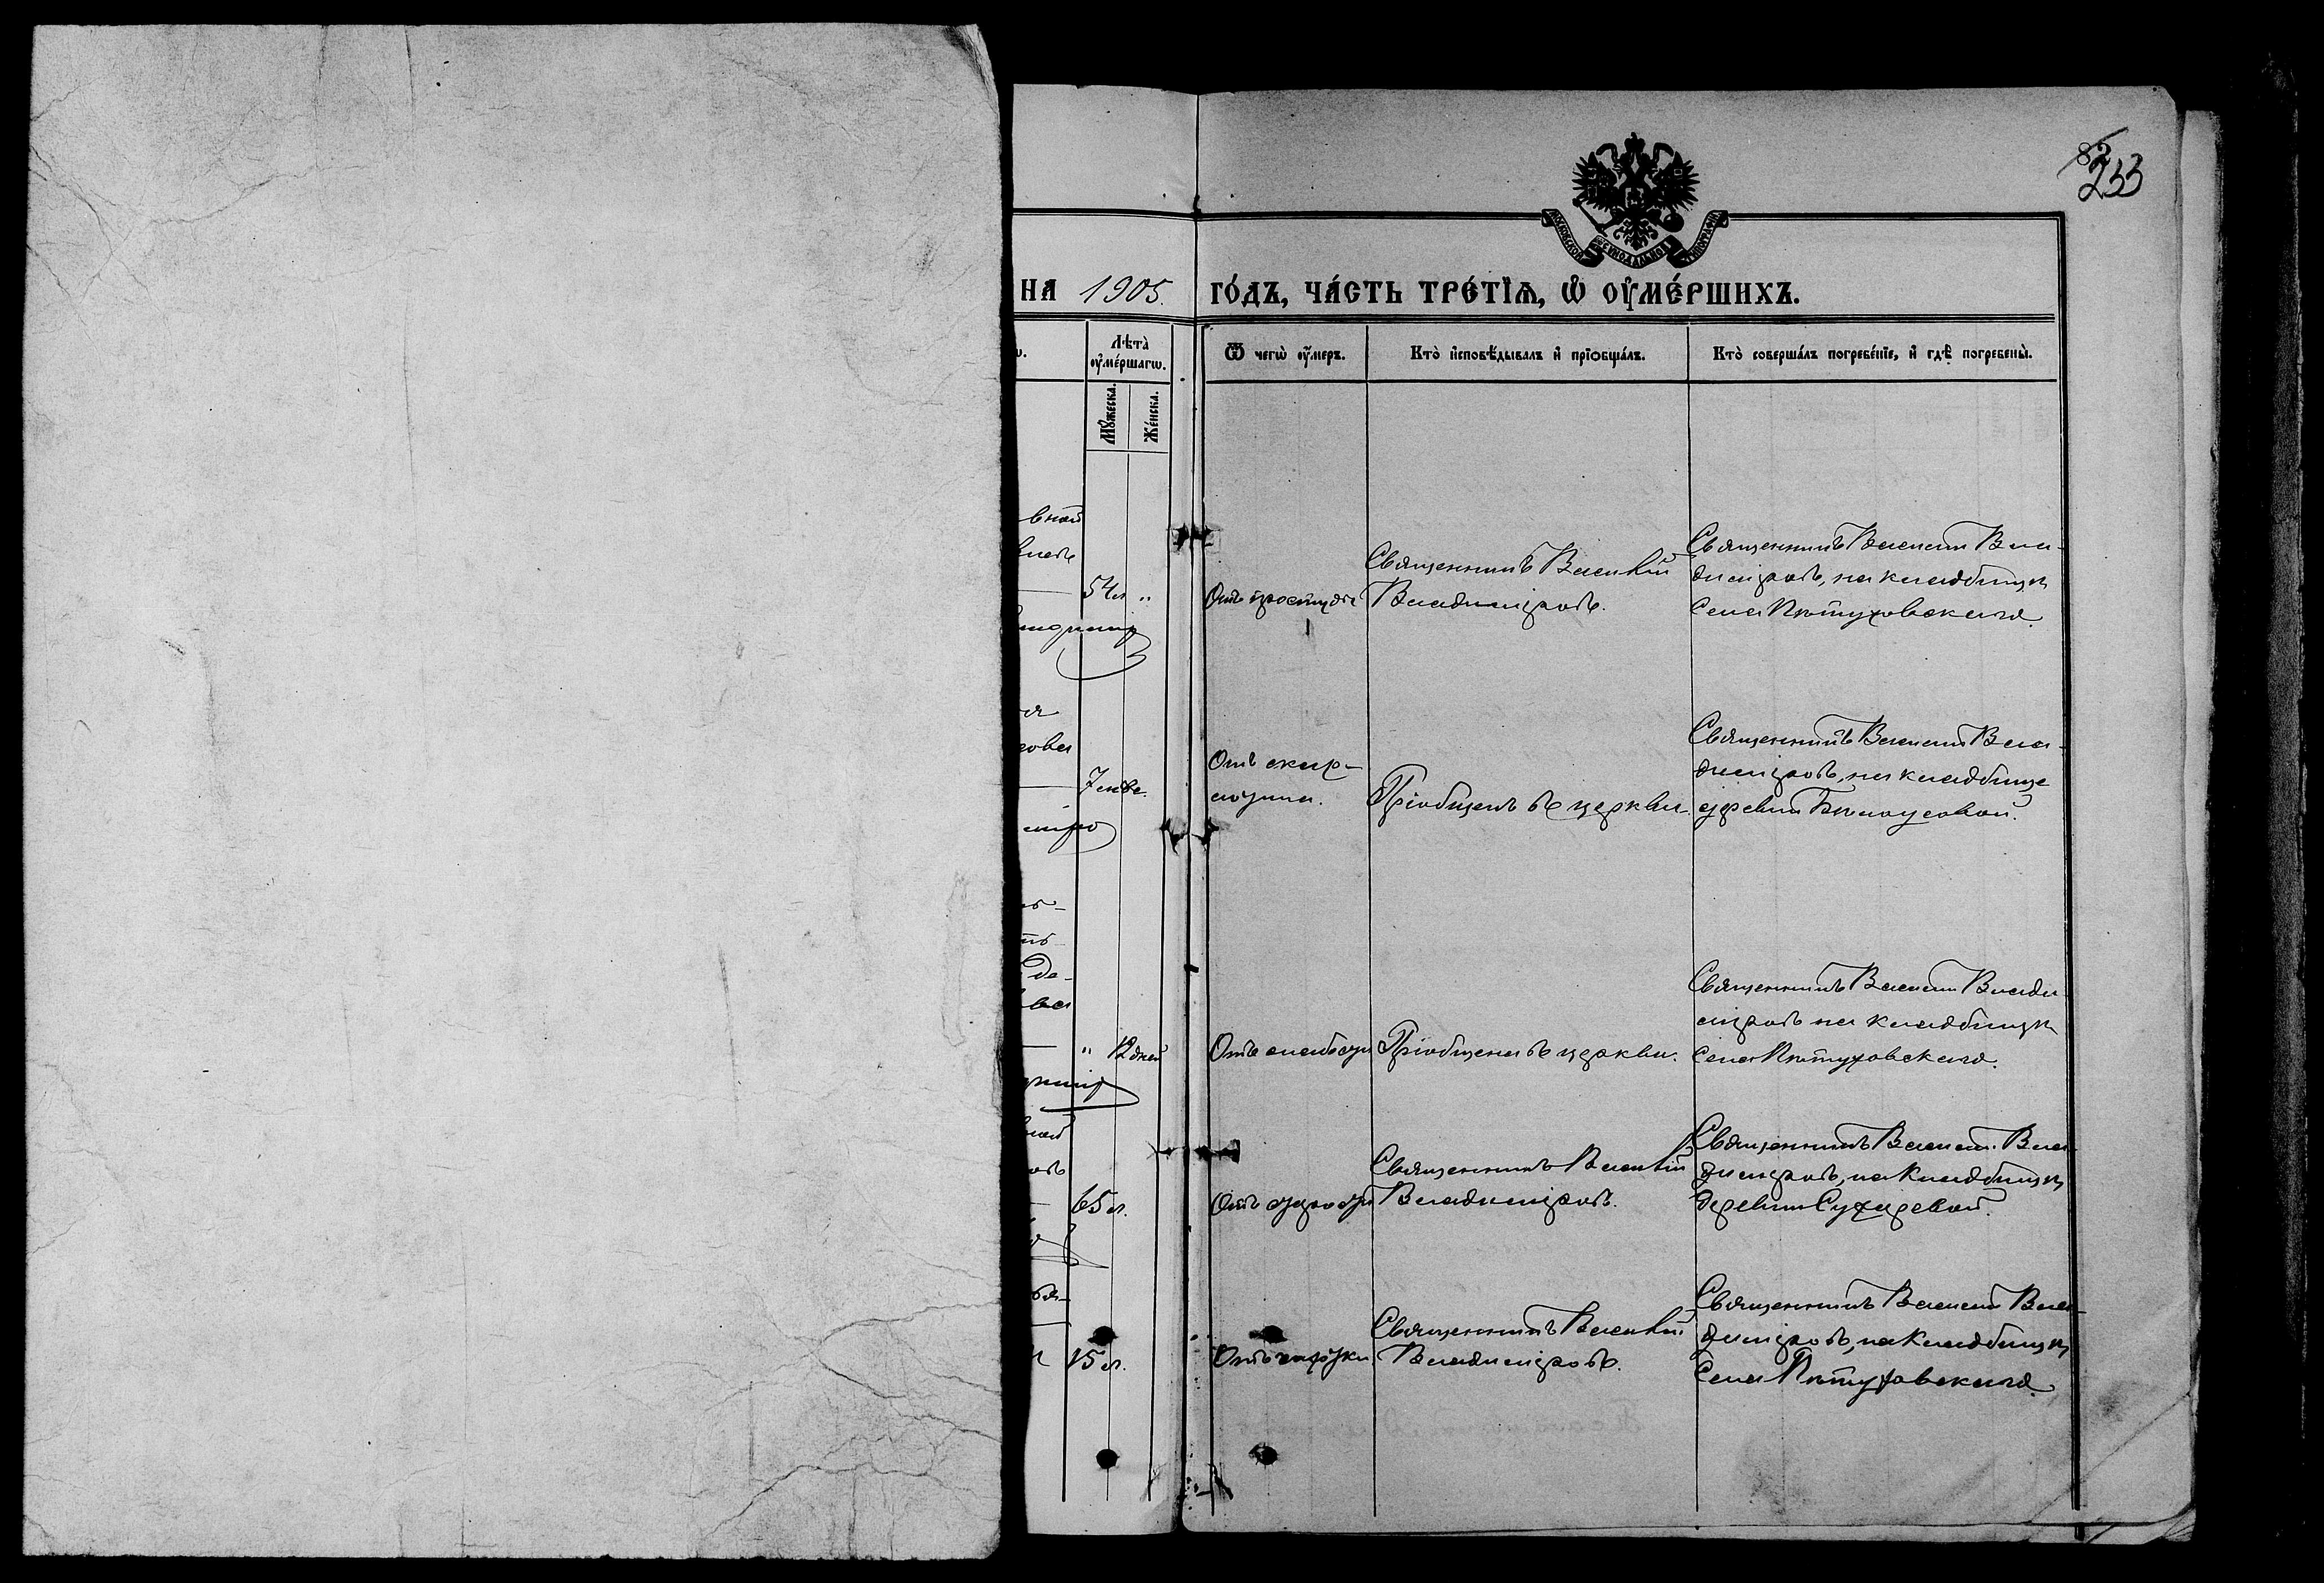 82
233
МОСКОВСКОЙ СѴНОДАЛЬНОЙ ТИПОГРАФІИ
НА 1905. ГО́ДЪ, ЧА́СТЬ ТРЕ́ТЇѦ, Ѡ҆ ОУ҆МЕ́РШИХЪ.
Лѣта̀ оу҆ме́ршагѡ.
Мꙋ́жеска.
Же́нска.
Ѿ чегѡ̀ оу҆́меръ.
Кто̀ и҆сповѣ́дывалъ и҆ прїѡбща́лъ.
Кто̀ соверша́лъ погребе́нїе, и҆ гдѣ̀ погребены̀.
вной
54 л "
Отъ простуды
Священникъ Василій
Владиміровъ.
Священникъ Василій Вла-
диміровъ, на кладбищѣ
села Пѣтуховскаго.
7 мѣс.
Отъ скар-
латины.
Пріобщенъ въ церкви.
Священникъ Василій Вла-
диміровъ, на кладбище
деревни Бѣлоусовой.
" 12 дней
Отъ слабости
Пріобщена въ церкви.
Священникъ Василій Влади-
міровъ на кладбищѣ
села Пѣтуховскаго.
65 л.
Отъ старости
Священникъ Василій
Владиміровъ.
Священникъ Василій Вла-
диміровъ, на кладбищѣ
деревни Сухаревой.
15 л.
Отъ чахотки
Священникъ Василій
Владиміровъ.
Священникъ Василій Вла-
диміровъ, на кладбищѣ
села Пѣтуховскаго.